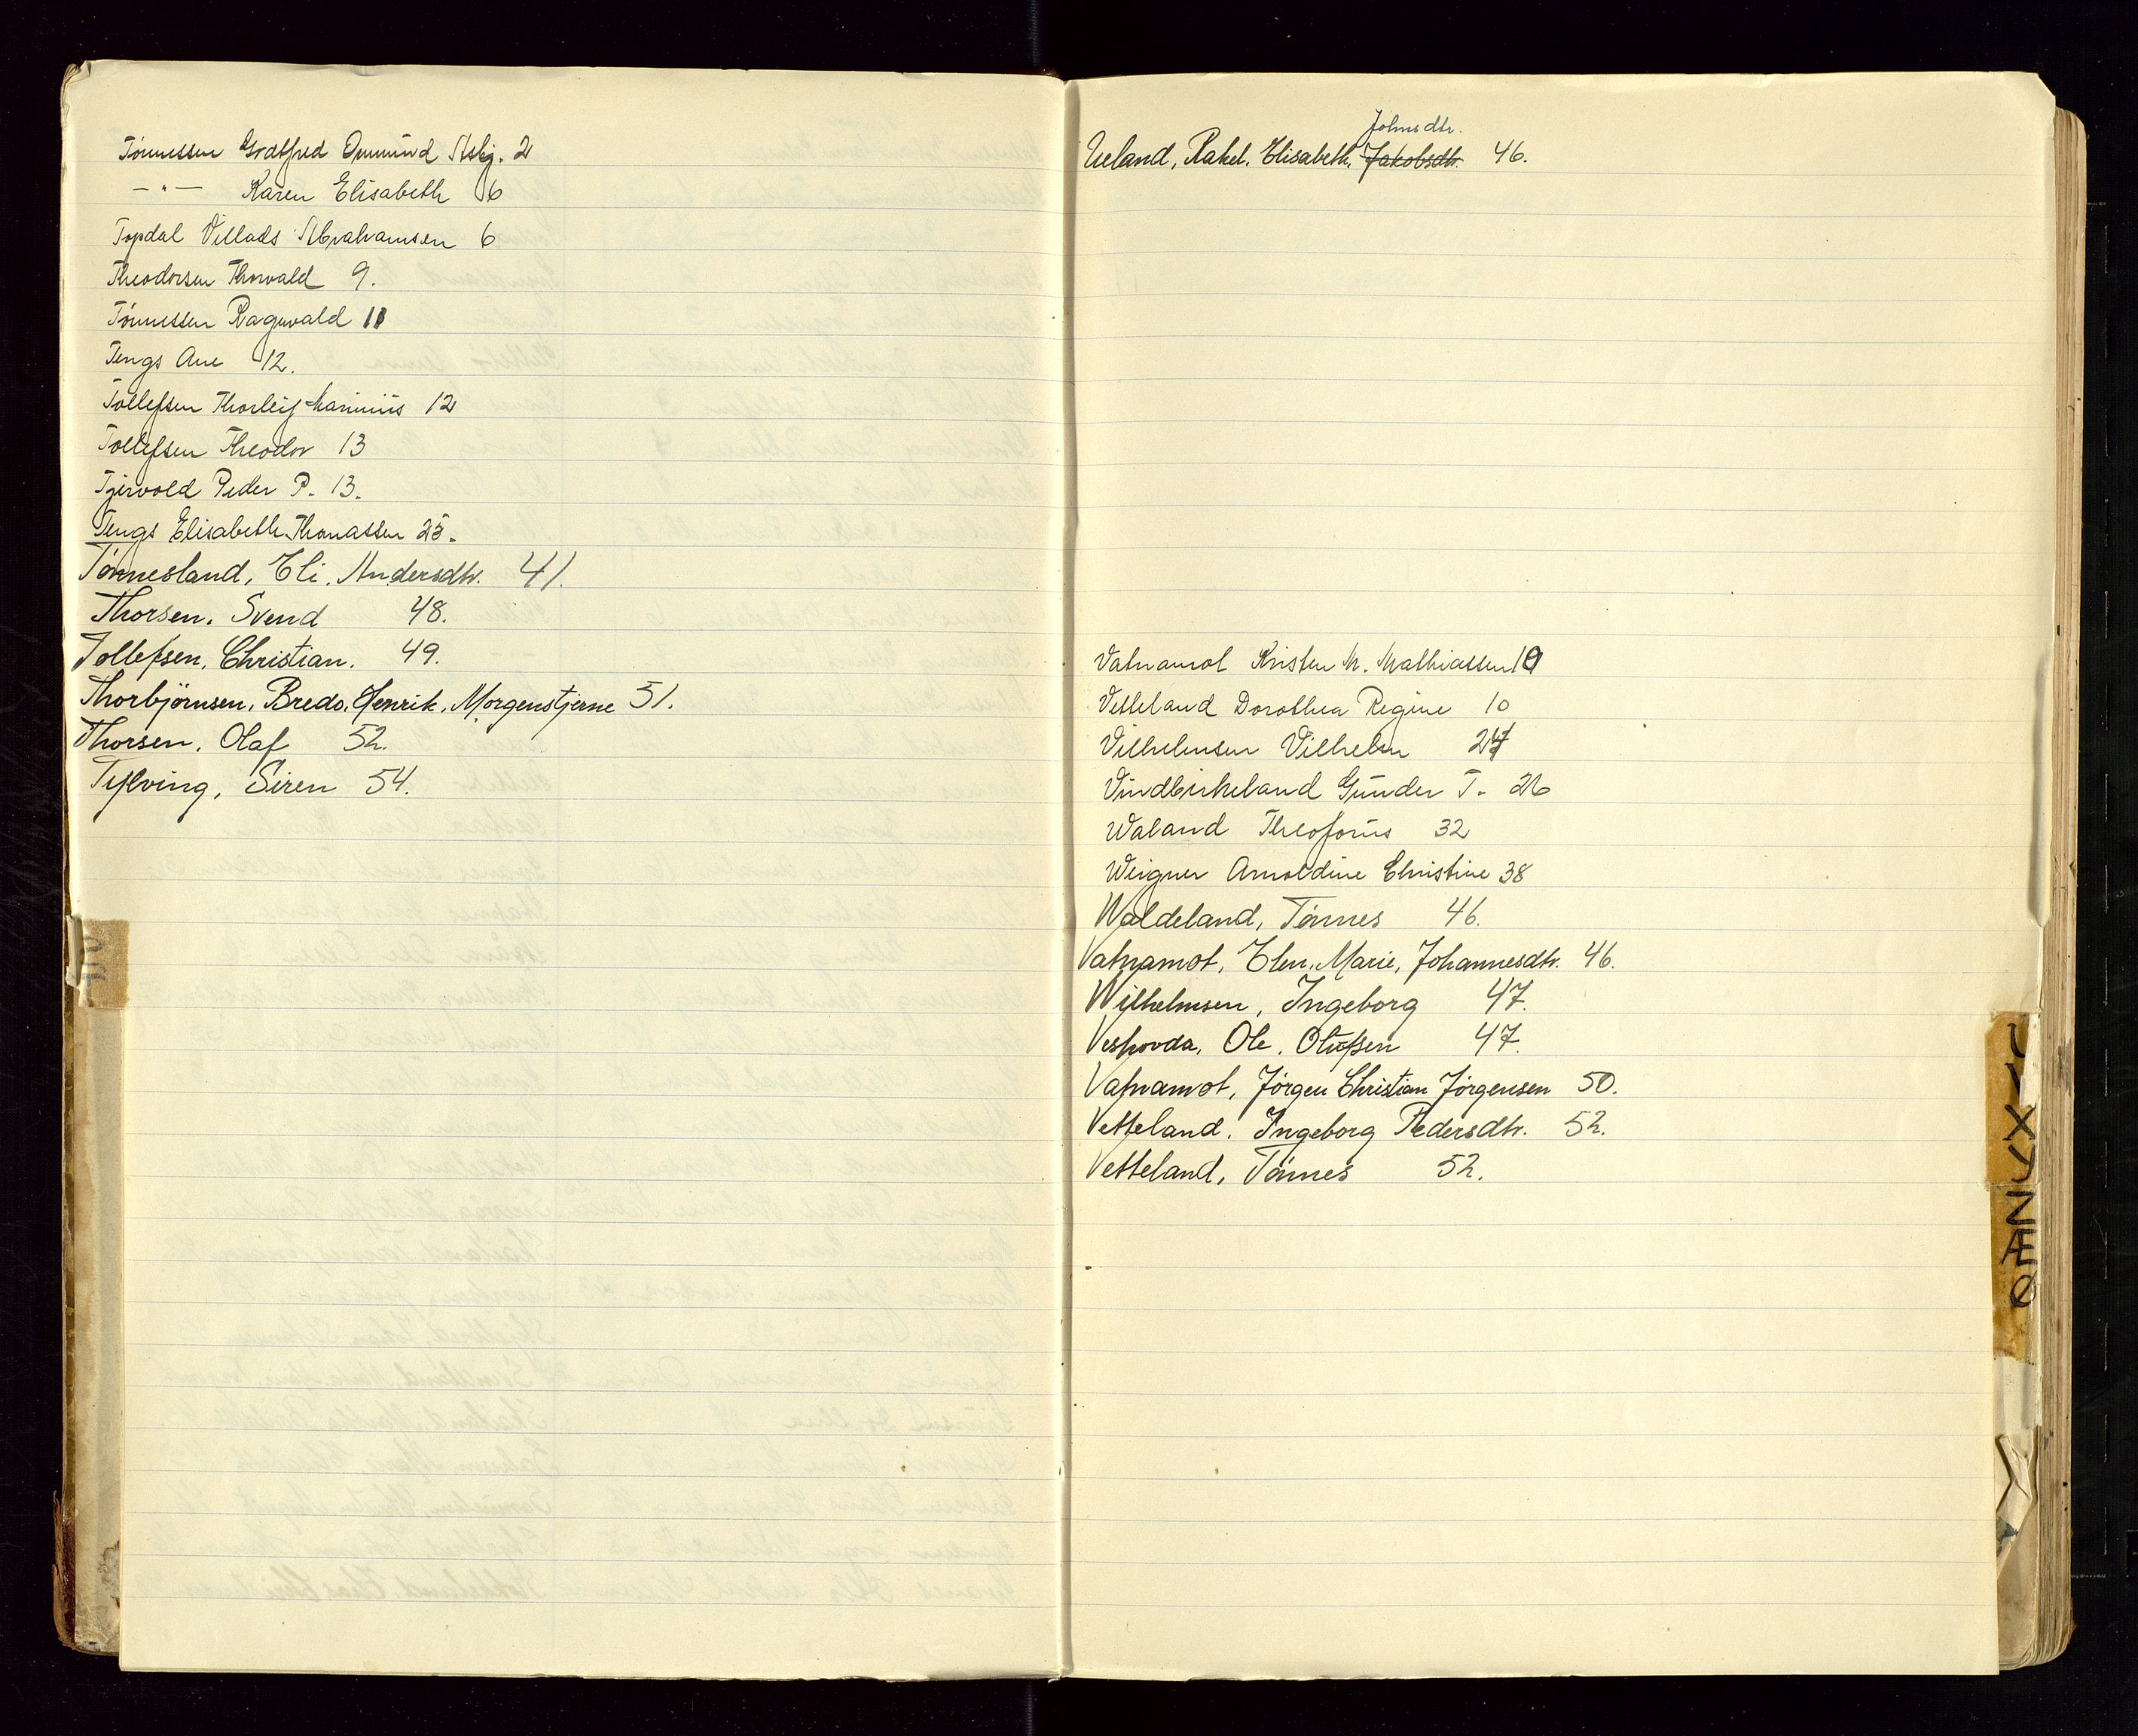 Tönnessen Godtfred Ommund Asbj. 2
— " — Karen Elisabeth 6
Topdal Villads Abrahamsen 6
Theodorsen Thorvald 9.
Tönnessen Ragnvald 11
Tengs Ane 12.
Tollefsen Thorleif Marinius 12
Tollefsen Theodor 13
Tjersvold Peder P. 13.
Tengs Elisabeth Thomassen 25.
Tönnesland, Eli. Andersdtr. 41.
Thorsen. Svend 48.
Tollefsen, Christian. 49.
Thorbjörnsen, Bredo, Henrik, Morgenstjerne 51.
Thorsen, Olaf 52.
Tysving, Siren 54.
Johnsdtr.
Ueland, Rakel. Elisabeth. Jakobsdtr. 46.
Vatnamot Kristen M. Mathiassen 10
Vetteland Dorothea Regine 10
Vilhelmsen Vilhelm 24
Vindbirkeland Gunder T. 26
Waland Theoforus 32
Weigner Arnoldine Christine 38
Waldeland, Tönnes 46.
Vatnamot, Elen. Marie, Johannesdtr. 46.
Wilhelmsen, Ingeborg 47.
Veshovda, Ole. Olufsen 47.
Vatnamot, Jörgen Christian Jörgensen 50.
Vetteland. Ingeborg Pedersdtr. 52.
Vetteland, Tönnes 52.
U
V
X
Y
Z
Æ
Ø